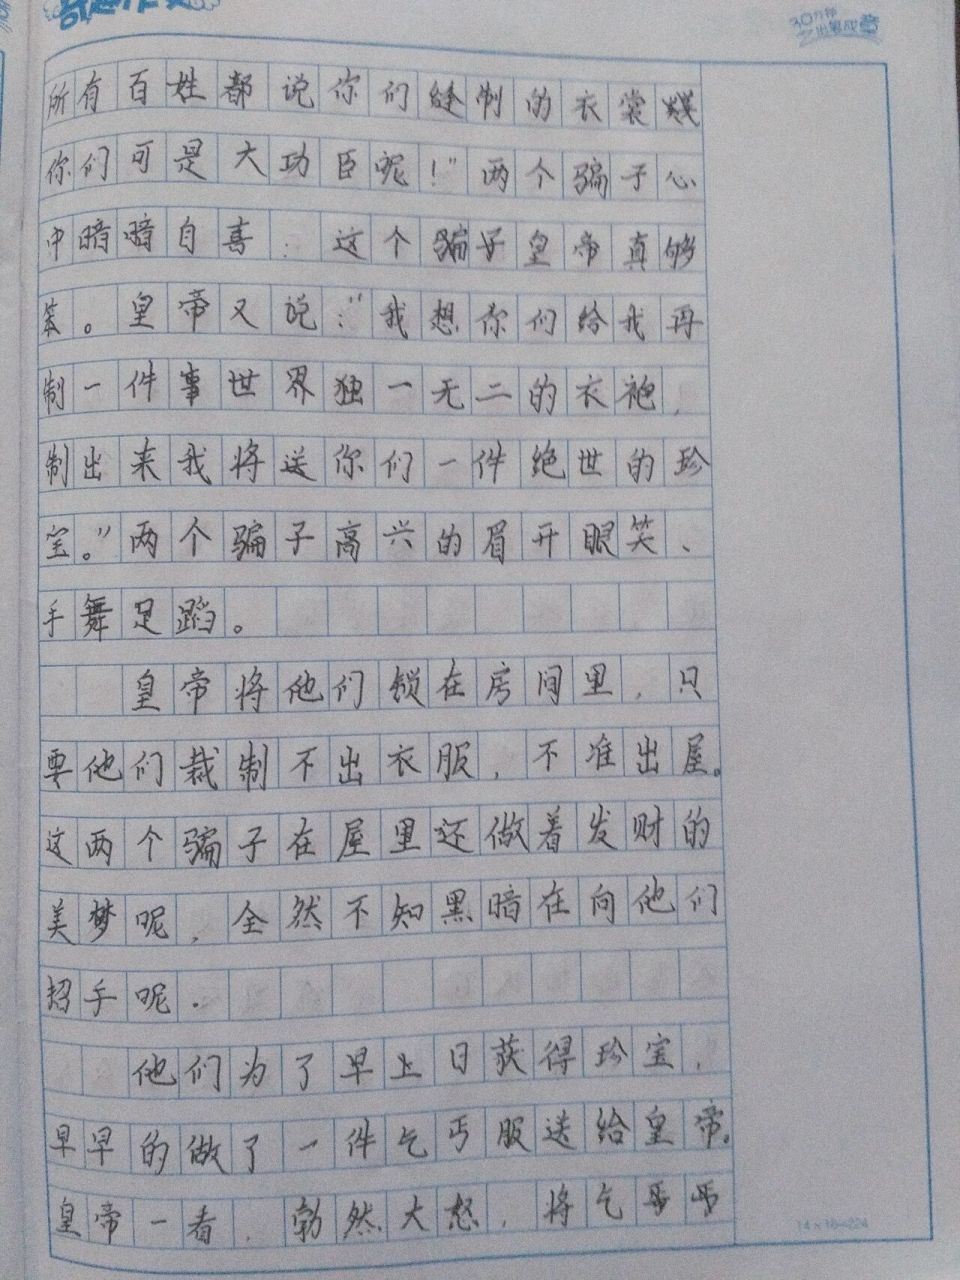 30分钟
所有百姓都说你们缝制的衣裳
你们可是大功臣呢！”两个骗子心
中暗暗自喜：这个骗子皇帝真够
笨。皇帝又说：“我想你们给我再
制一件事世界独一无二的衣袍，
制出来我将送你们一件绝世的珍
宝。”两个骗子高兴的眉开眼笑、
手舞足蹈。
皇帝将他们锁在房间里，只
要他们裁制不出衣服，不准出屋。
这两个骗子在屋里还做着发财的
美梦呢，全然不知黑暗在向他们
招手呢。
他们为了早上日获得珍宝，
早早的做了一件乞丐服送给皇帝。
皇帝一看，勃然大怒，将乞
14×16=224